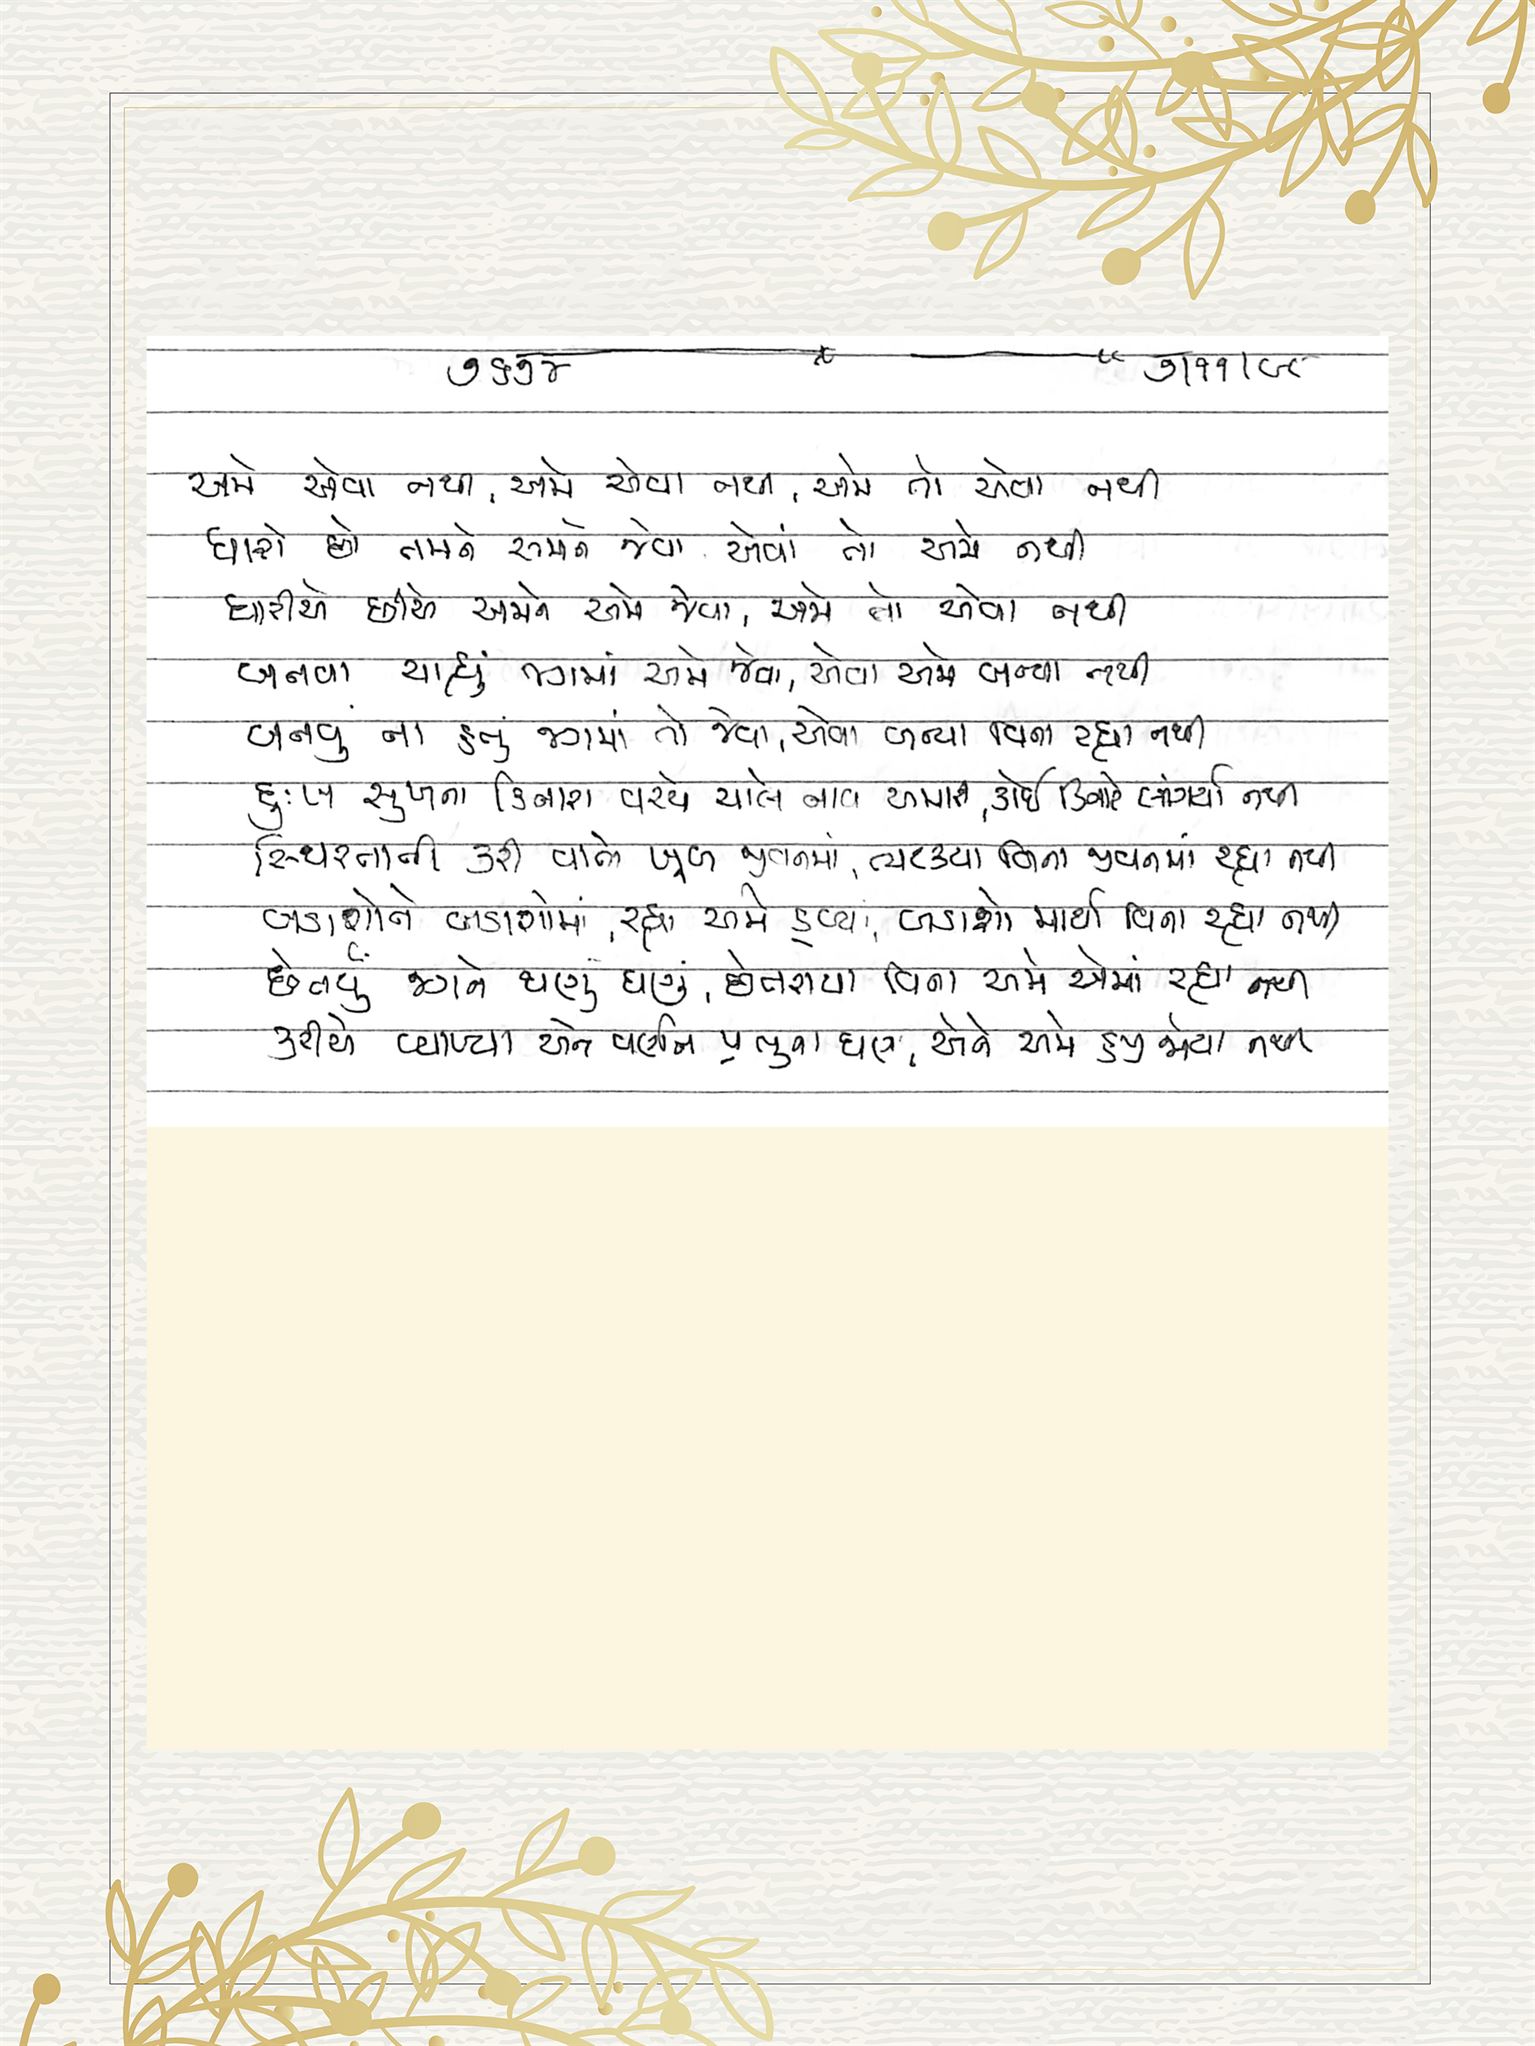 ૭૬૭૪ ૭/૧૧/૯૮
અમે એવા નથી, અમે એવા નથી, અમે તો એવા નથી
ધારો છો તમને અમને જેવા એવાં તો અમે નથી
ધારીએ છીએ અમને અમે જેવા, અમે તો એવા નથી
બનવા ચાહ્યું જગમાં અમે જેવા, એવા અમે બન્યા નથી
બનવું ના હતું જગમાં તો જેવા, એવા બન્યા વિના રહ્યા નથી
દુઃખ સુખના કિનારા વચ્ચે ચાલે નાવ અમારી, કોઈ કિનારે લાંગર્યા નથી
સ્થિરતાની કરી વાતો ખૂબ જીવનમાં, ભટક્યા વિના જીવનમાં રહ્યા નથી
બડાશોને બડાશોમાં, રહ્યા અમે ડૂબ્યાં, બડાશો માર્યા વિના રહ્યા નથી
છેતર્યું જગને ઘણું ઘણું, છેતરાયા વિના અમે એમાં રહ્યા નથી
કરીએ વ્યાખ્યા અને વર્ણન પ્રભુના ઘણા, એને અમે હજી જોયા નથી